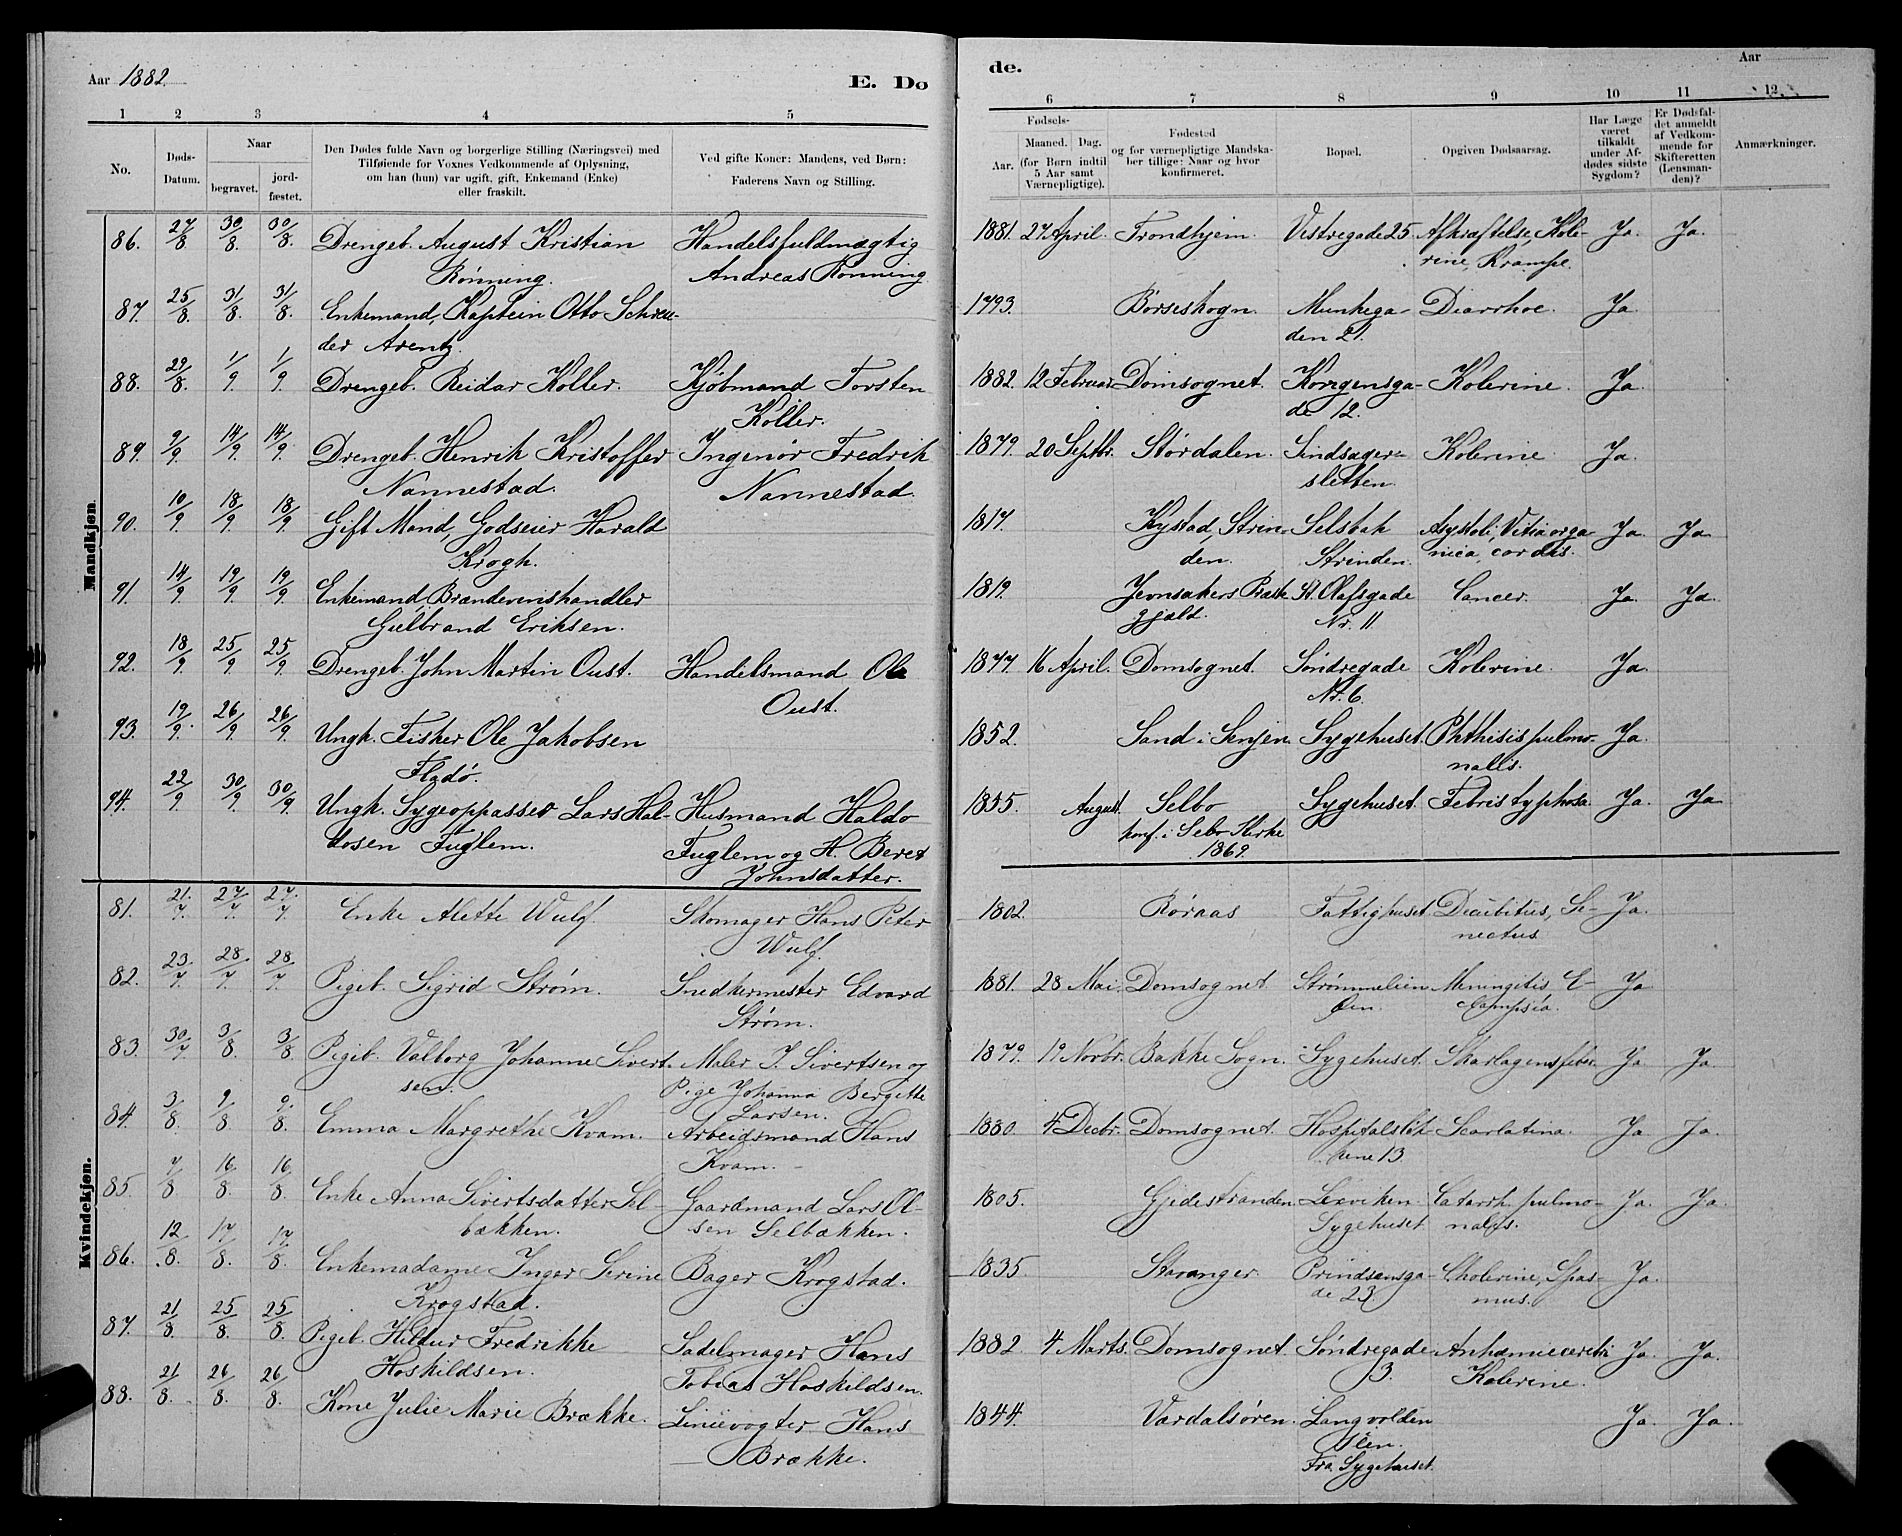 Aar 1882.
E. Dø
de.
Aar
1 2 3 4 5
6 7 8 9 10 11 12
No.
Døds-Datum.
Naar
begravet.
jord-fæstet.
Den Dødes fulde Navn og borgerlige Stilling (Næringsvei) med
Tilføiende for Voxnes Vedkommende af Oplysning,
om han (hun) var ugift, gift, Enkemand (Enke)
eller fraskilt.
Ved gifte Koner: Mandens, ved Børn:
Faderens Navn og Stilling.
Fødsels-
Aar.
Maaned. Dag.
(for Børn indtil
5 Aar samt
Værnepligtige).
Fødested
og for værnepligtige Mandska-
ber tillige: Naar og hvor
konfirmeret.
Bopæl.
Opgiven Dødsaarsag.
Har Læge
været
tilkaldt
under Af-
dødes sidste
Sygdom?
Er Dødsfal-
det anmeldt
af Vedkom-
mende for
Skifteretten
(Lensman-
den)?
Anmærkninger.
Mandkjøn.
86. 27/8 30/8. 30/8. Drengeb. August Kristian Handelsfuldmægtig 1881. 27 April. Trondhjem. Vestregade 25. Afkræftelse, Kole- Ja. Ja.
Rønning. Andreas Rønning rine, Krampe.
87. 25/8. 31/8. 31/8. Enkemand, Kaptein Otto Schreu- 1793. Børseskogn. Munkega- Diarrhoe. Ja.
der Arentz. den 21.
88. 29/8. 1/9. 1/9. Drengeb. Reidar Køller. Kjøbmand Torsten 1882. 12 Februar Domsognet. Kongensga- Kolerine. Ja.
Køller. de 12.
89. 9/9. 14/9. 14/9. Drengeb. Henrik Kristoffer Ingeniør Fredrik 1879. 20 Septbr. Størdalen. Sindsager- Kolerine. Ja.
Nannestad. Nannestad. sletten.
90. 10/9. 18/9. 18/9. Gift Mand, Godseier Harald 1817. Kystad, Strin- Selsbak Asystoli, Vitia orga- Ja. Ja.
Krogh. den. Strinden. nica cordis.
91. 14/9. 19/9. 19/9. Enkemand, Brændevinshandler 1819. Jevnakers Præste- St. Olafsgade Cancer. Ja. Ja.
Gulbrand Eriksen. gjæld. Nr. 11
92. 18/9. 25/9. 25/9. Drengeb. John Martin Oust. Handelsmand Ole 1877. 16 April. Domsognet. Søndregade Kolerine. Ja.
Oust. Nr. 6.
93. 19/9. 26/9. 26/9. Ungk. Fisker Ole Jakobsen 1852. Sand i Senjen. Sygehuset. Phthisis pulmo- Ja.
Fladø. nalis.
94. 22/9. 30/9. 30/9. Ungk. Sygeopasser Lars Hal- Husmand Haldo 1855. August. Selbo Sygehuset. Febris typhosa Ja. Ja.
dosen Fuglem. Fuglem og H. Beret konf. i Selbo Kirke
Johnsdatter. 1869.
Kvindekjøn.
81. 21/7. 27/7. 27/7. Enke Alette Wulf. Skomager Hans Peter 1802. Røraas Fattighuset. Decubitus, Se- Ja.
Wulf. nectus
82. 23/7. 28/7. 28/7. Pigeb. Sigrid Strøm. Snedkermester Edvard 1881. 28 Mai. Domsognet Meningitis E- Ja
Strøm. clampsia.
83. 30/7 3/8. 3/8 Pigeb. Valborg Johanne Sivert- Maler J. Sivertsen og 1879. 19 Novbr. Bakke Sogn. Sygehuset. Skarlagensfeber Ja. Ja.
sen. Pige Johanna Bergitte
Larsen.
84. 3/8. 9/8. 9/8. Emma Margrethe Kvam. Arbeidsmand Hans 1880. 4 Decbr. Domsognet. Hospitalsløk- Scarlatina. Ja. Ja.
Kvam. kene 13.
85. 7/8. 16/8. 16/8. Enke Anna Sivertsdatter Sel- Gaardmand Lars Ol- 1805. Gjedestranden. Lexviken. Catarrh. pulmo- Ja. Ja.
bækken. sen Selbækken. Sygehuset nalis.
86. 12/8. 17/8. 17/8. Enkemadame Inger Serine Bager Krogstad. 1835. Stavanger. Prindsensga- Cholerine, Spas- Ja.
Krogstad. de 23. mus.
87. 21/8. 25/8. 25/8. Pigeb. Hildur Fredrikke Sadelmager Hans 1882. 4 Marts. Domsognet. Søndregade Anhæmie cerebri Ja. Ja.
Hoskildsen. Tobias Hoskildsen. 3. Kolerine.
88. 21/8. 26/8. 26/8. Kone Julie Marie Brække. Linievogter Hans 1844. Værdalsøren. Langvolden Ja. Ja.
Brække. Ilen.
Fra Sygehuset.